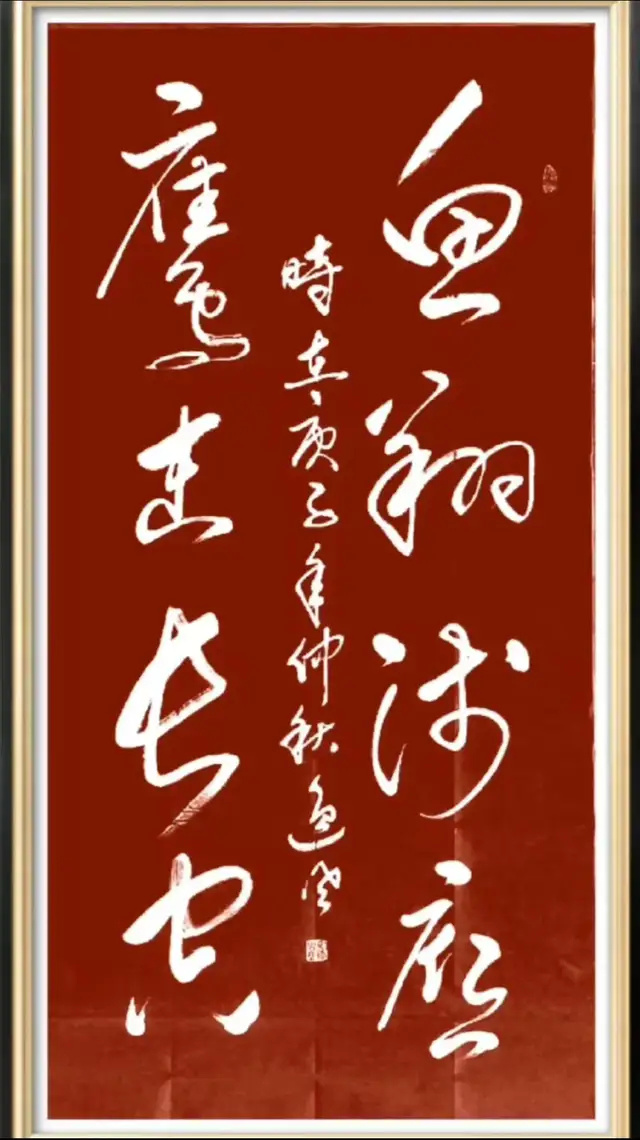 鱼翔浅底
時在庚子年仲秋
鹰击长空